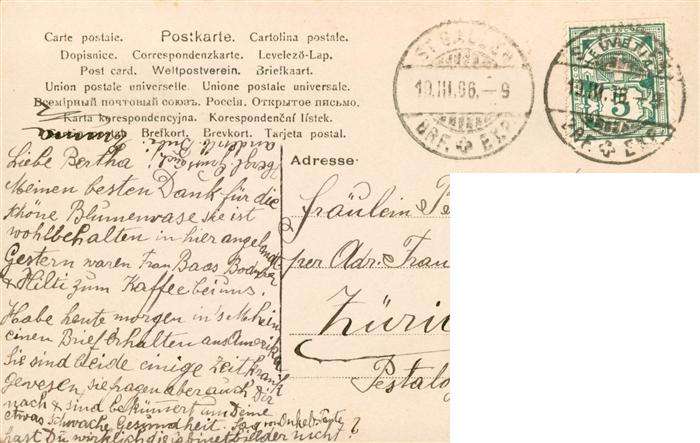 Carte postale. Postkarte. Cartolina postale.
Dopisnice. Correspondenzkarte. Levelező-Lap.
Post card. Weltpostverein. Briefkaart.
Union postale universelle. Unione postale universale.
Всемірный почтовый союзъ. Россія. Открытое письмо.
Karta korespondencyjna. Korespondenční lístek.
Brefkort. Brevkort. Tarjeta postal.
ST. GALLEN
10.III.06.–9
BRF. EXP.
HELVETIA
5
BRF. EXP.
Adresse:
Liebe Bertha!
Meinen besten Dank für die
schöne Blumenvase sie ist
wohlbehalten in hier angelangt
Gestern waren Frau Baas
& Hilti zum Kaffee bei uns.
Habe heute morgen in's
einen Brief erhalten aus Amerika
Sie sind beide einige Zeit krank
gewesen, sie fragen aber auch Dir
nach & sind bekümmert um Deine
etwas schwache Gesundheit.
hast Du wirklich die nicht?
Fräulein
per Adr. Frau
Züri
Pestalo